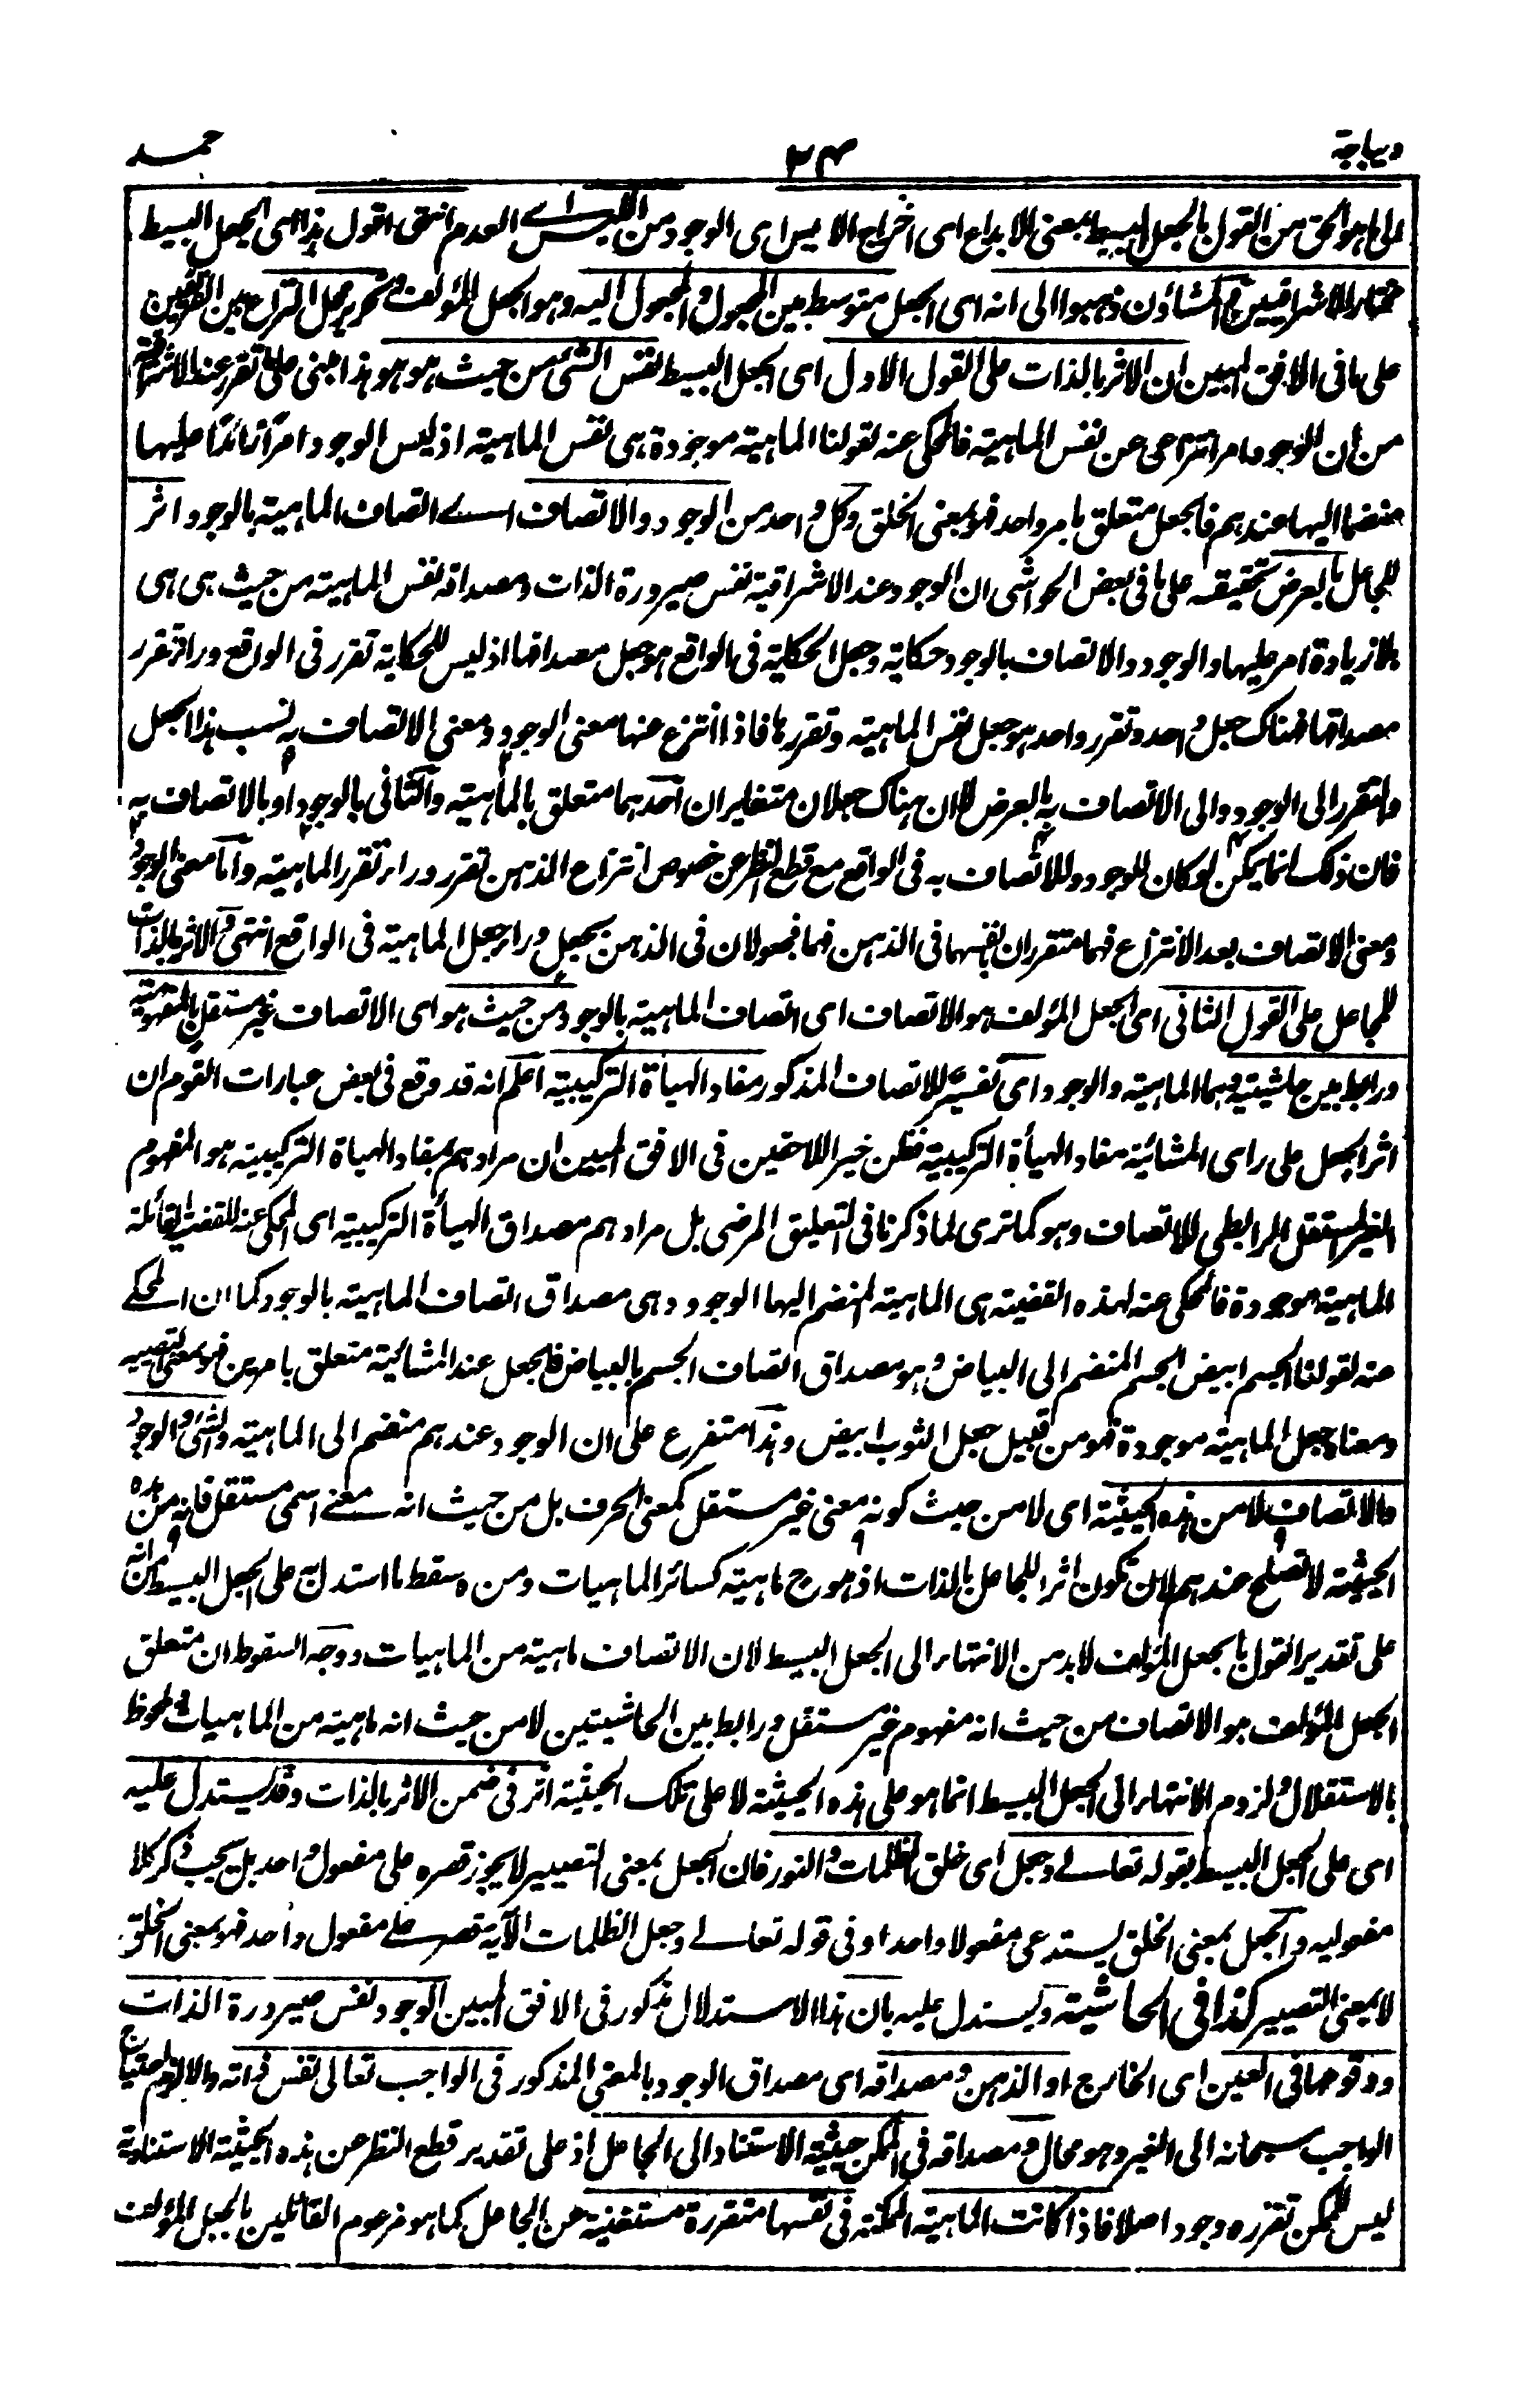 ديباجة ٢٤ حمد
الى ما هو الحق من القول بالجعل البسيط بمعنى الابداع اى اخراج الايس اى الوجود من الليس اے العدم انتهى اقول هذا اى الجعل البسيط
مختار الاشراقيين والمشاؤن ذهبوا الى انه اى الجعل متوسط بين المجعول والمجعول اليه وهو الجعل المؤلف وتحرير محل النزاع بين الفريقين
على ما فى الافق المبين ان الاثر بالذات على القول الاول اى الجعل البسيط نفس الشئ من حيث هو هو هذا مبنى على ما تقرر عند الاشراقية
من ان الوجود امر انتزاعى عن نفس الماهية فالمحكى عنه لقولنا الماهية موجودة هى نفس الماهية اذ ليس الوجود امرا زائدا عليها
منضما اليها عندهم فالجعل متعلق بامر واحد فهو بمعنى الخلق وكل واحد من الوجود والاتصاف اے اتصاف الماهية بالوجود اثر
للجاعل بالعرض تحقيقه على ما فى بعض الحواشى ان الوجود عند الاشراقية نفس صيرورة الذات ومصداقه نفس الماهية من حيث هى هى
بلا زيادة امر عليها والوجود والاتصاف بالوجود حكاية وجعل الحكاية فى الواقع هو جعل مصداقها اذ ليس للحكاية تقرر فى الواقع وراء تقرر
مصداقها فهناك جعل واحد وتقرر واحد هو جعل نفس الماهية وتقررها فاذا انتزع عنها معنى الوجود ومعنى الاتصاف به نسب هذا الجعل
والتقرر الى الوجود والى الاتصاف به بالعرض لا ان هناك جعلان متغايران احدهما متعلق بالماهية والثانى بالوجود او بالاتصاف به
فان ذلك انما يمكن لو كان للوجود وللاتصاف به فى الواقع مع قطع النظر عن خصوص انتزاع الذهن تقرر وراء تقرر الماهية واما معنى الوجود
ومعنى الاتصاف بعد الانتزاع فهما متقرران بانفسهما فى الذهن فهما مجعولان فى الذهن بجعل وراء جعل الماهية فى الواقع انتهى والاثر بالذات
للجاعل على القول الثانى اى الجعل المؤلف هو الاتصاف اى اتصاف الماهية بالوجود من حيث هو اى الاتصاف غير مستقل بالمفهومية
ورابط بين حاشيتيه وهما الماهية والوجود اى تفسير للاتصاف المذكور مفاد الهيأة التركيبية اعلم انه قد وقع فى بعض عبارات القوم ان
اثر الجعل على راى المشائية مفاد الهيأة التركيبية فظن خير اللاحقين فى الافق المبين ان مرادهم بمفاد الهيأة التركيبية هو المفهوم
الغير المستقل الرابطى للاتصاف وهو كما ترى لما ذكرنا فى التعليق المرضى بل مرادهم مصداق الهيأة التركيبية اى المحكى عنه للقضية القائلة
الماهية موجودة فالمحكى عنه لهذه القضية هى الماهية المنضم اليها الوجود وهى مصداق اتصاف الماهية بالوجود كما ان المحكے
عنه لقولنا الجسم ابيض الجسم المنضم الى البياض وهو مصداق اتصاف الجسم بالبياض فالجعل عند المشائية متعلق بامرين فهو بمعنى التصيير
ومعناه جعل الماهية موجودة فهو من قبيل جعل الثوب ابيض وهذا متفرع على ان الوجود عندهم منضم الى الماهية والشئ والوجود
والاتصاف لا من هذه الحيثية اى لا من حيث كونه معنى غير مستقل كمعنى الحرف بل من حيث انه معنے اسمى مستقل فانه من هذه
الحيثية لا تصلح عندهم لان تكون اثرا للجاعل بالذات اذ هو ح ماهية كسائر الماهيات ومن ه سقط ما استدل به على الجعل البسيط من انه
على تقدير القول بالجعل المؤلف لابد من الانتهاء الى الجعل البسيط لان الاتصاف ماهية من الماهيات ووجه السقوط ان متعلق
الجعل المؤلف هو الاتصاف من حيث انه مفهوم غير مستقل ورابط بين الحاشيتين لا من حيث انه ماهية من الماهيات وملحوظ
بالاستقلال ولزوم الانتهاء الى الجعل البسيط انما هو على هذه الحيثية لا على تلك الحيثية اثر فى ضمن الاثر بالذات وقد يستدل عليه
اى على الجعل البسيط بقوله تعالے وجعل اى خلق الظلمات والنور فان الجعل بمعنى التصيير لا يجوز قصره على مفعول واحد بل يجب ذكر كلا
مفعوليه والجعل بمعنى الخلق يستدعى مفعولا واحدا وفى قوله تعالے وجعل الظلمات الآية قصر علے مفعول واحد فهو بمعنى الخلق
لا بمعنى التصيير كذا فى الحاشية ويستدل عليه بان هذا الاستدلال مذكور فى الافق المبين الوجود نفس صيرورة الذات
ووقوعها فى العين اى الخارج او الذهن ومصداقه اى مصداق الوجود بالمعنى المذكور فى الواجب تعالى نفس ذاته والا لزم احتياج
الواجب سبحانه الى الغير وهو محال ومصداقه فى الممكن حيثية الاستناد الى الجاعل اذ على تقدير قطع النظر عن هذه الحيثية الاستنادية
ليس للممكن تقرره وجود اصلا فاذا كانت الماهية الممكنة فى نفسها متقررة مستغنية عن الجاعل كما هو مزعوم القائلين بالجعل المؤلف